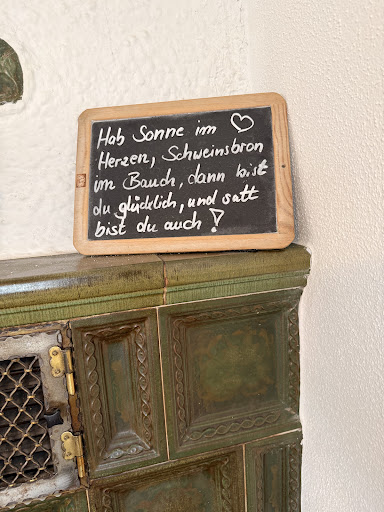 Hab Sonne im
Herzen, Schweinsbron
im Bauch, dann bist
du glücklich, und satt
bist du auch!